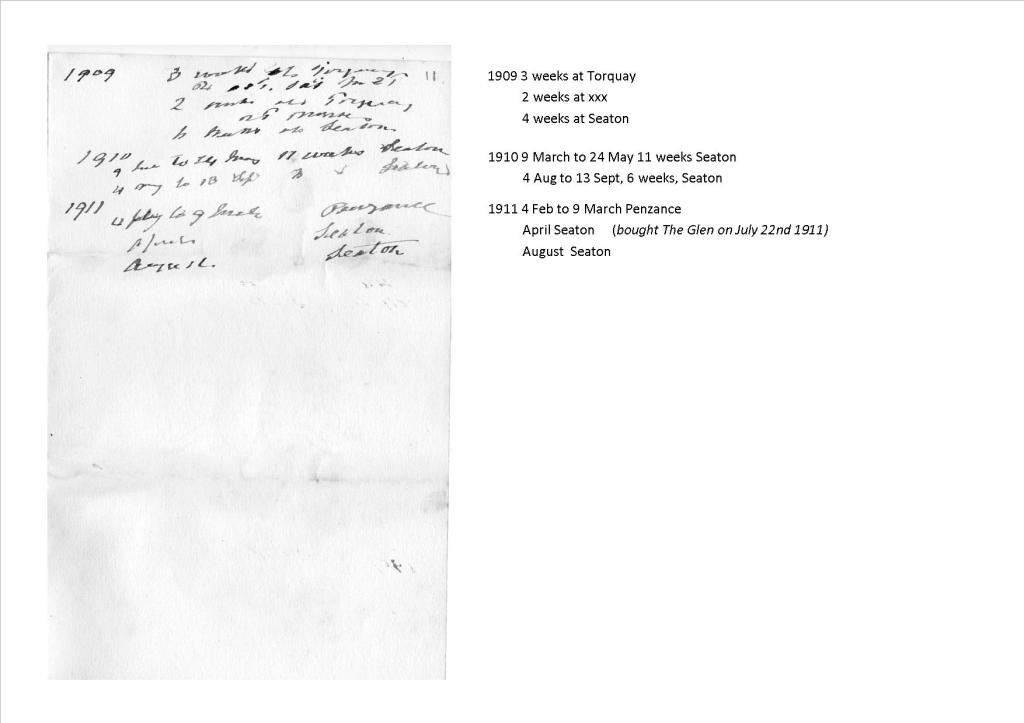 1909 3 weeks at Torquay 11
2 weeks at Torquay
weeks at Seaton
1910
9 to 24 May 11 weeks Seaton
4 to 13 Sep Seaton
1911
4 to 9 March Penzance
April Seaton
August. Seaton
1909 3 weeks at Torquay
2 weeks at xxx
4 weeks at Seaton
1910 9 March to 24 May 11 weeks Seaton
4 Aug to 13 Sept, 6 weeks, Seaton
1911 4 Feb to 9 March Penzance
April Seaton (bought The Glen on July 22nd 1911)
August Seaton